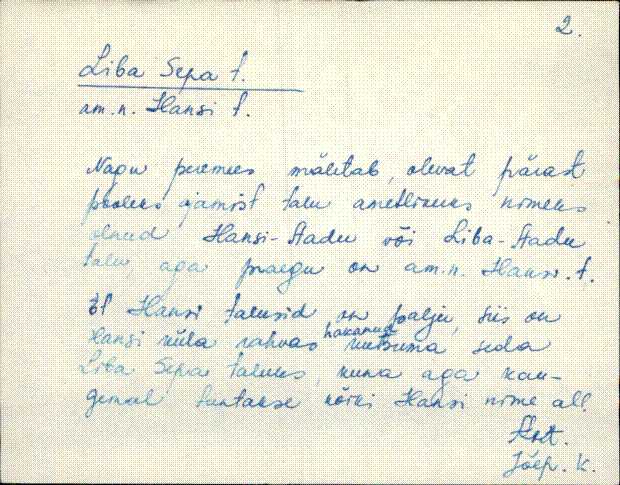 2.
Liba Sepa t.
am.n. Hansi t.
Nagu peremees mäletab, olevat pärast
pooleks ajamist talu ametlikuks nimeks
olnud Hansi-Aadu või Liba-Aadu
talu, aga praegu on am.n. Hansi t.
Et Hansi talusid on palju, siis on
Hansi küla rahvas hakanud kutsuma seda
Liba Sepa taluks, kuna aga kau-
gemal tuntakse kõiki Hansi nime all.
Jõep. k.